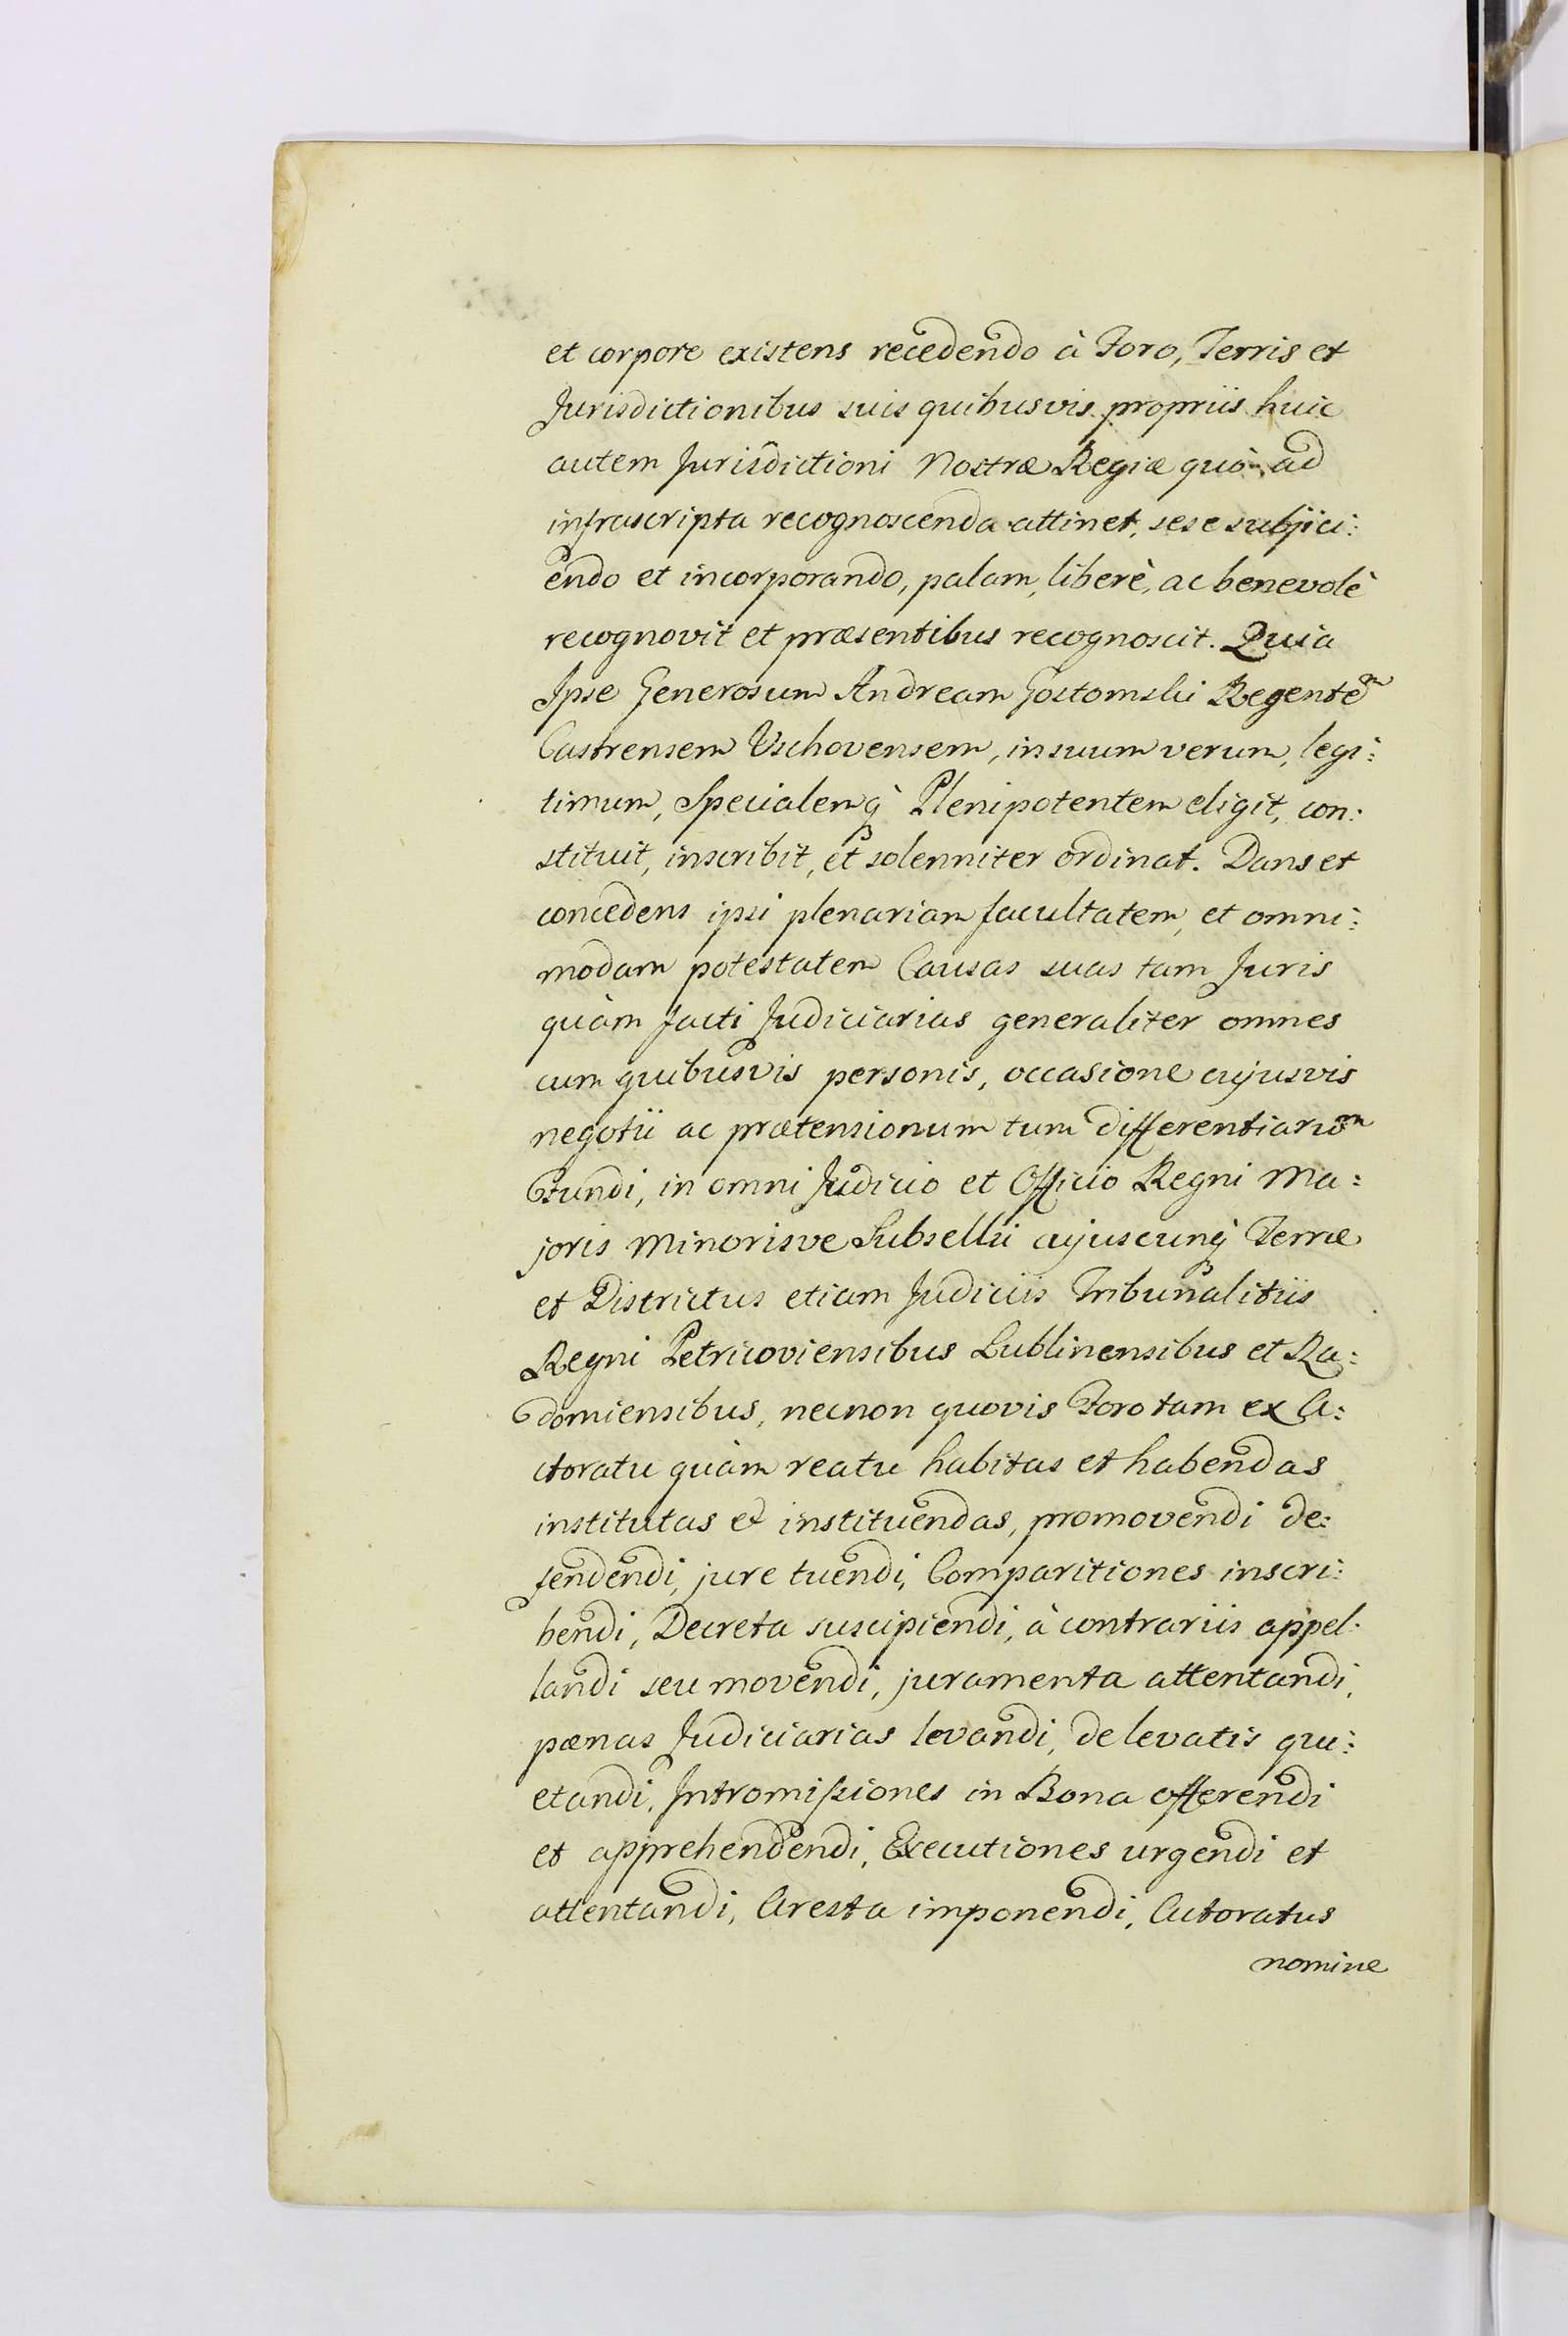 et corpore existens recedendo à Foro, Terris et
Jurisdictionibus suis quibusvis propriis huic
autem Jurisdictioni Nostræ Regiæ quò ad
infrascripta recognoscenda attinet, sese subjici:
endo et incorporando, palam, liberè, ac benevolè
recognovit et præsentibus recognoscit. Quia
Ipse Generosum Andream Gostomski Regente͠m
Castrensem Vschovensem, in suum verum, legi:
timum, Specialemq̀ Plenipotentem eligit, con:
stituit, inscribit, et solenniter ordinat. Dans et
concedens ipsi plenariam facultatem, et omni:
modam potestatem Causas suas tam Juris
quàm facti Judiciarias generaliter omnes
cum quibusvis personis, occasione cujusvis
negotii ac prætensionum tum differentiarum
Fundi, in omni Judicio et Officio Regni Ma:
joris Minorisve Subsellii cujuscunq̀ Terræ
et Districtus etiam Judiciis Tribunalitiis
Regni Petricoviensibus Lublinensibus et Ra:
domiensibus, necnon quovis Foro tam ex A:
ctoratu quàm reatu habitas et habendas
institutas et instituendas, promovendi de:
fendendi, jure tuendi, Comparitiones inscri:
bendi, Decreta suscipiendi, à contrariis appel:
landi seu movendi, juramenta attentandi,
pænas Judiciarias levandi, de levatis qui:
etandi, Intromißiones in Bona offerendi
et apprehendendi, Executiones urgendi et
attentandi, Aresta imponendi, Actoratus
nomine